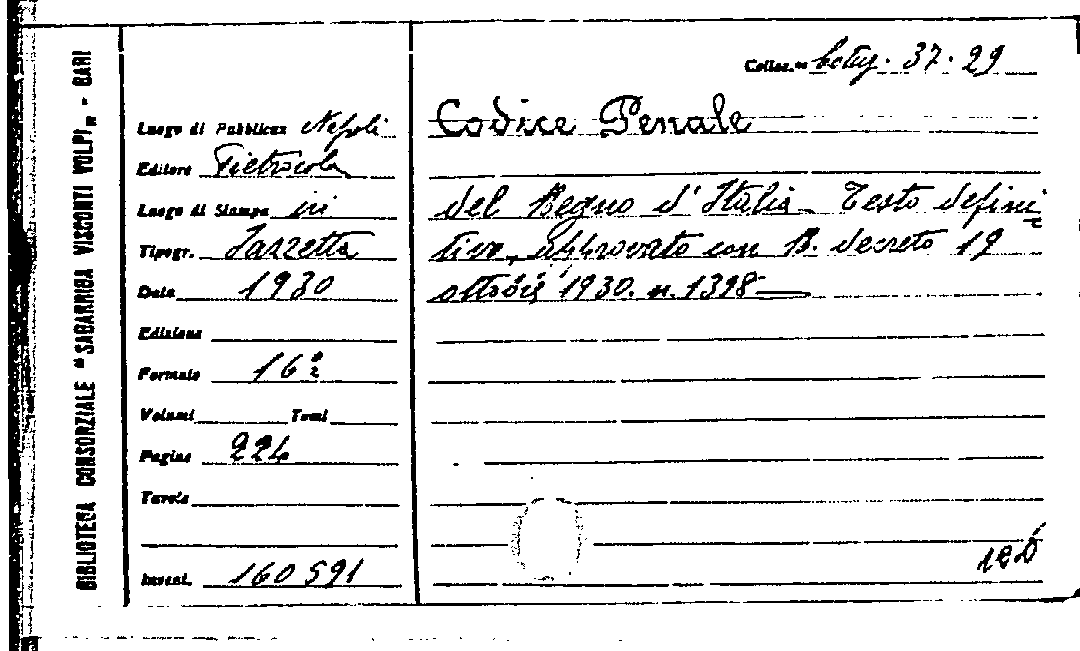 BIBLIOTECA CONSORZIALE "SAGARRIGA VISCONTI VOLPI" - BARI
Colloc.ne 37-29
Luogo di Pubblicaz Napoli
Editore Pietrocola
Luogo di Stampa ivi
Tipogr. Jazzetta
Data 1930
Edizione
Formato 16º
Volumi Tomi
Pagine 224
Tavole
Invent. 160591
Codice Penale
del Regno d'Italia - Testo defini
tivo, approvato con R. decreto 19
ottobre 1930. n. 1398